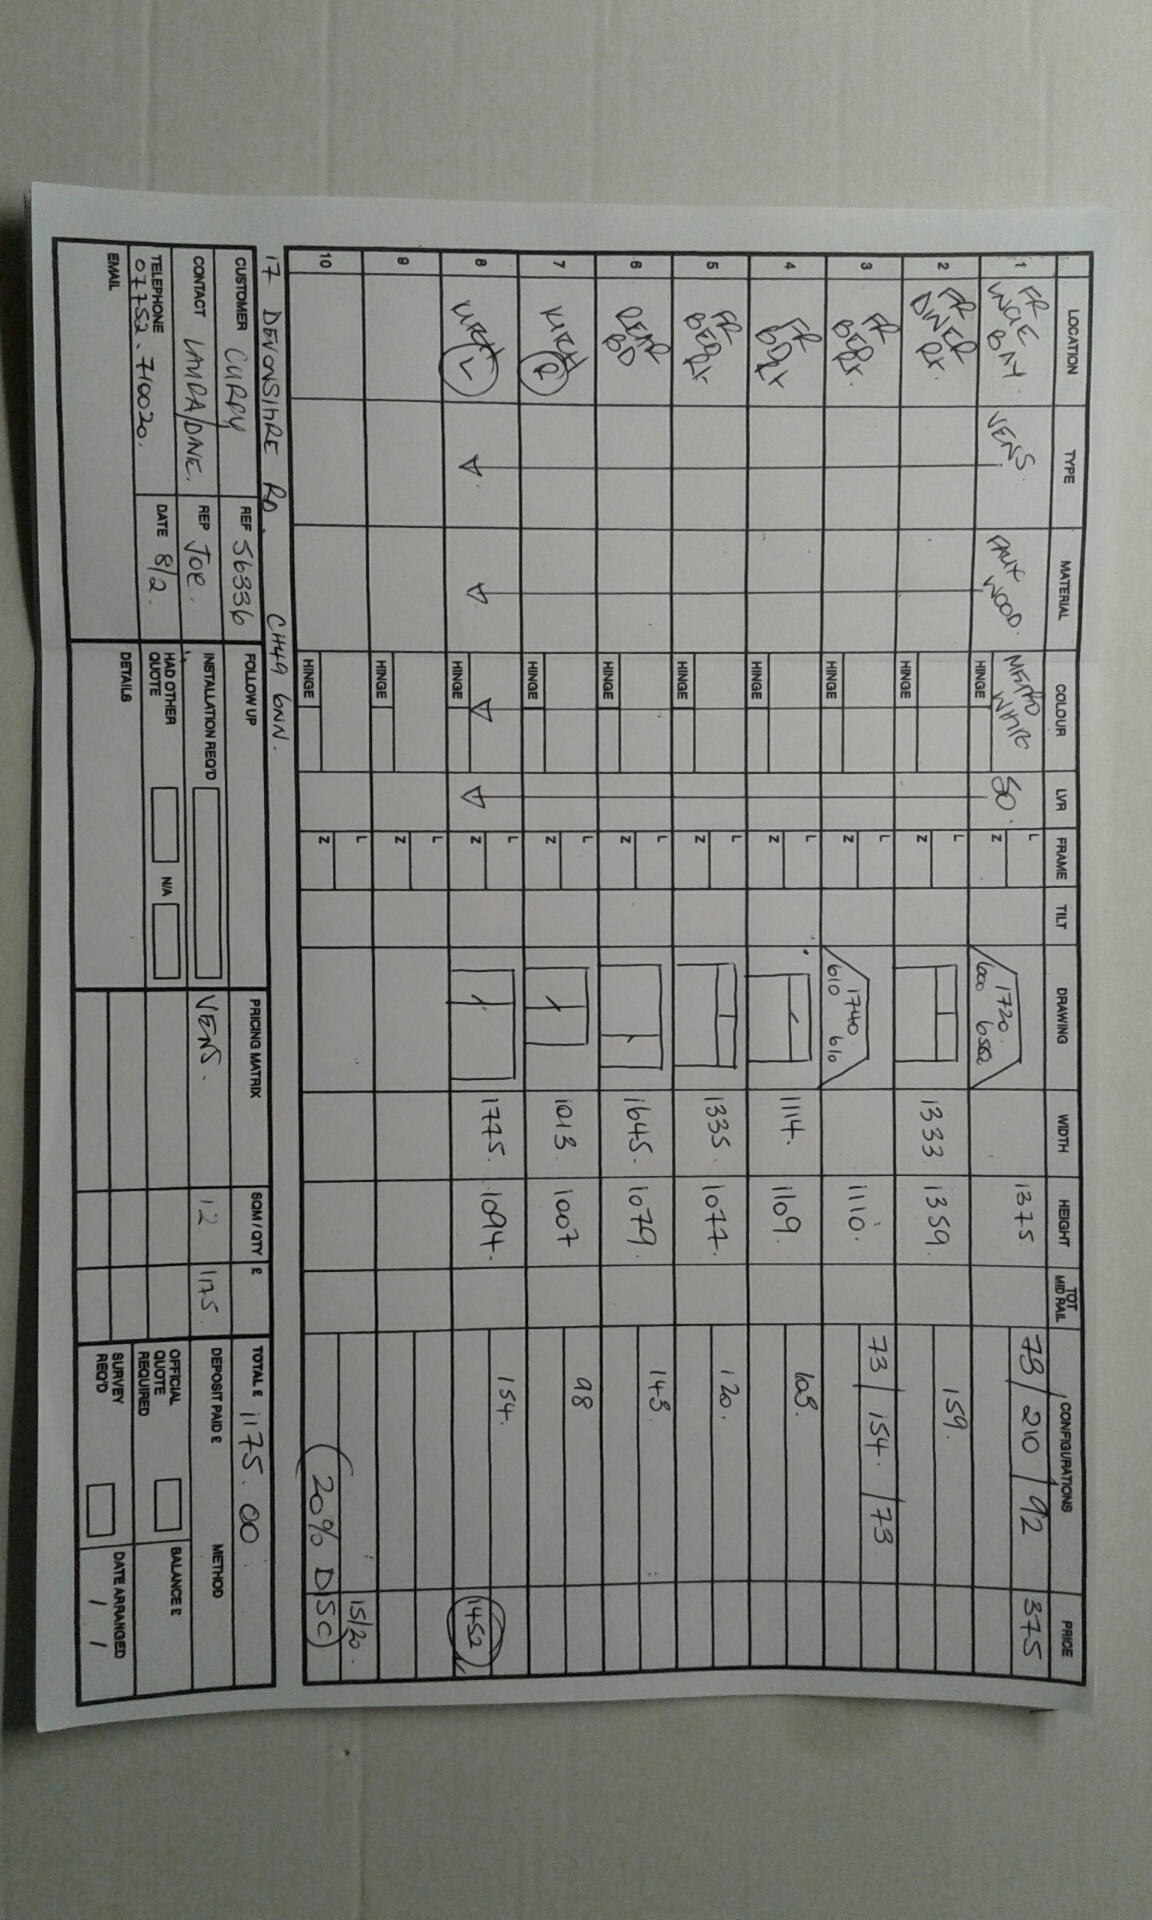 LOCATION TYPE MATERIAL COLOUR LVR FRAME TILT DRAWING WIDTH HEIGHT TOT MID RAIL CONFIGURATIONS PRICE
1 FR LNGE BAY. VENS. FAUX WOOD. WHITE HINGE 50. L Z 1720 600 1375 78 / 210 / 92 375
2 FR DNER RX. HINGE L Z 1333 1359. 159.
3 FR BEDRX. HINGE L Z 1740 610 610 1110. 73 / 154. / 73
4 FR BDRX HINGE L Z 1114. 1109. 103.
5 FR BEDRX HINGE L Z 1335. 1077. 120.
6 REAR BD HINGE L Z 1645. 1079. 143.
7 KITCH R HINGE L Z 1013 1007 98
8 KITCH L HINGE L Z 1775. 1094. 154. 1452
9 HINGE L Z
10 HINGE L Z 15/20.
20% DISC
17 DEVONSHIRE RD. CH49 6NN.
CUSTOMER CURRY REF 56336
CONTACT REP JOE.
TELEPHONE 07752.710020. DATE 8/2.
EMAIL
FOLLOW UP
INSTALLATION REQ'D
HAD OTHER QUOTE N/A
DETAILS
PRICING MATRIX SQM / QTY £
VENS. 12 1175.
TOTAL £ 1175.00
DEPOSIT PAID £ METHOD
OFFICIAL QUOTE REQUIRED BALANCE £
SURVEY REQ'D DATE ARRANGED / /